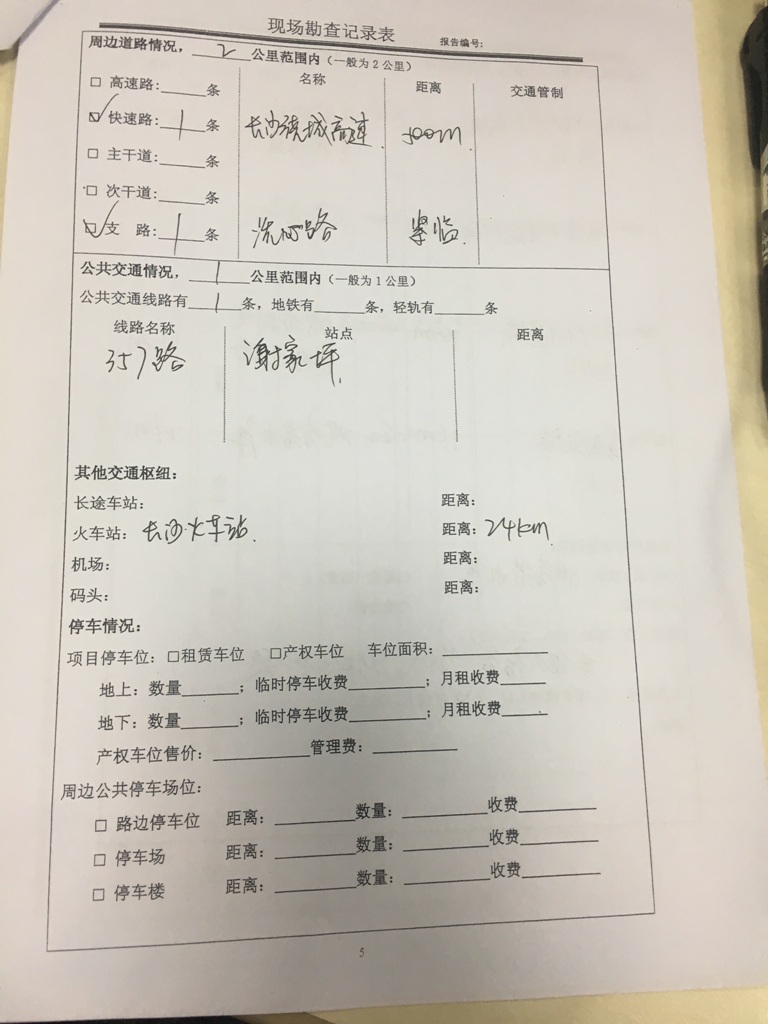 现场勘查记录表
报告编号:
周边道路情况, 2 公里范围内(一般为2公里)
名称 距离 交通管制
□ 高速路:_____条
☑ 快速路: 1 条 长沙绕城高速 500m
□ 主干道:_____条
□ 次干道:_____条
☑ 支 路: 1 条 洗心路 紧临.
公共交通情况, 1 公里范围内(一般为1公里)
公共交通线路有 1 条,地铁有_____条,轻轨有_____条
线路名称 站点 距离
357路 谢家坪
其他交通枢纽:
长途车站: 距离:
火车站: 长沙火车站. 距离: 24km.
机场: 距离:
码头: 距离:
停车情况:
项目停车位: □租赁车位 □产权车位 车位面积:__________
地上: 数量______; 临时停车收费________; 月租收费_____
地下: 数量______; 临时停车收费________; 月租收费_____
产权车位售价:__________管理费:________
周边公共停车场位:
□ 路边停车位 距离:________数量:________收费________
□ 停车场 距离:________数量:________收费________
□ 停车楼 距离:________数量:________收费________
5